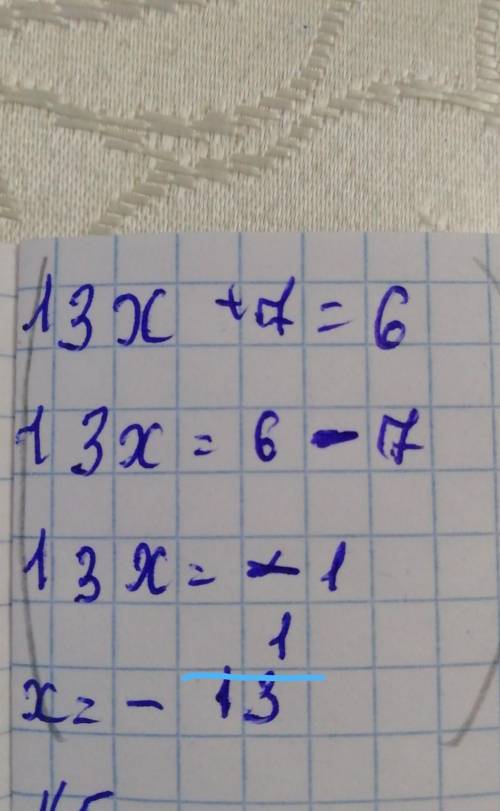 13x + 7 = 6
13x = 6 - 7
13x = - 1
x = - 1/13